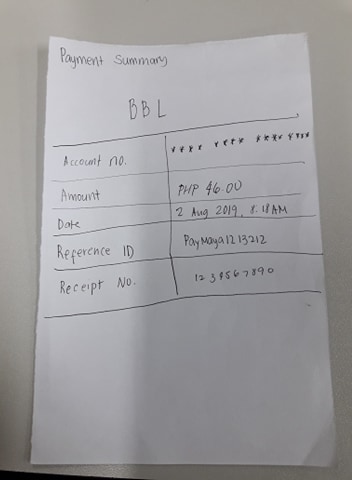 Payment Summary
BBL
Account no. **** **** **** ****
Amount PHP 46.00
Date 2 Aug 2019, 8:18AM
Reference ID PayMaya1213212
Receipt No. 1234567890